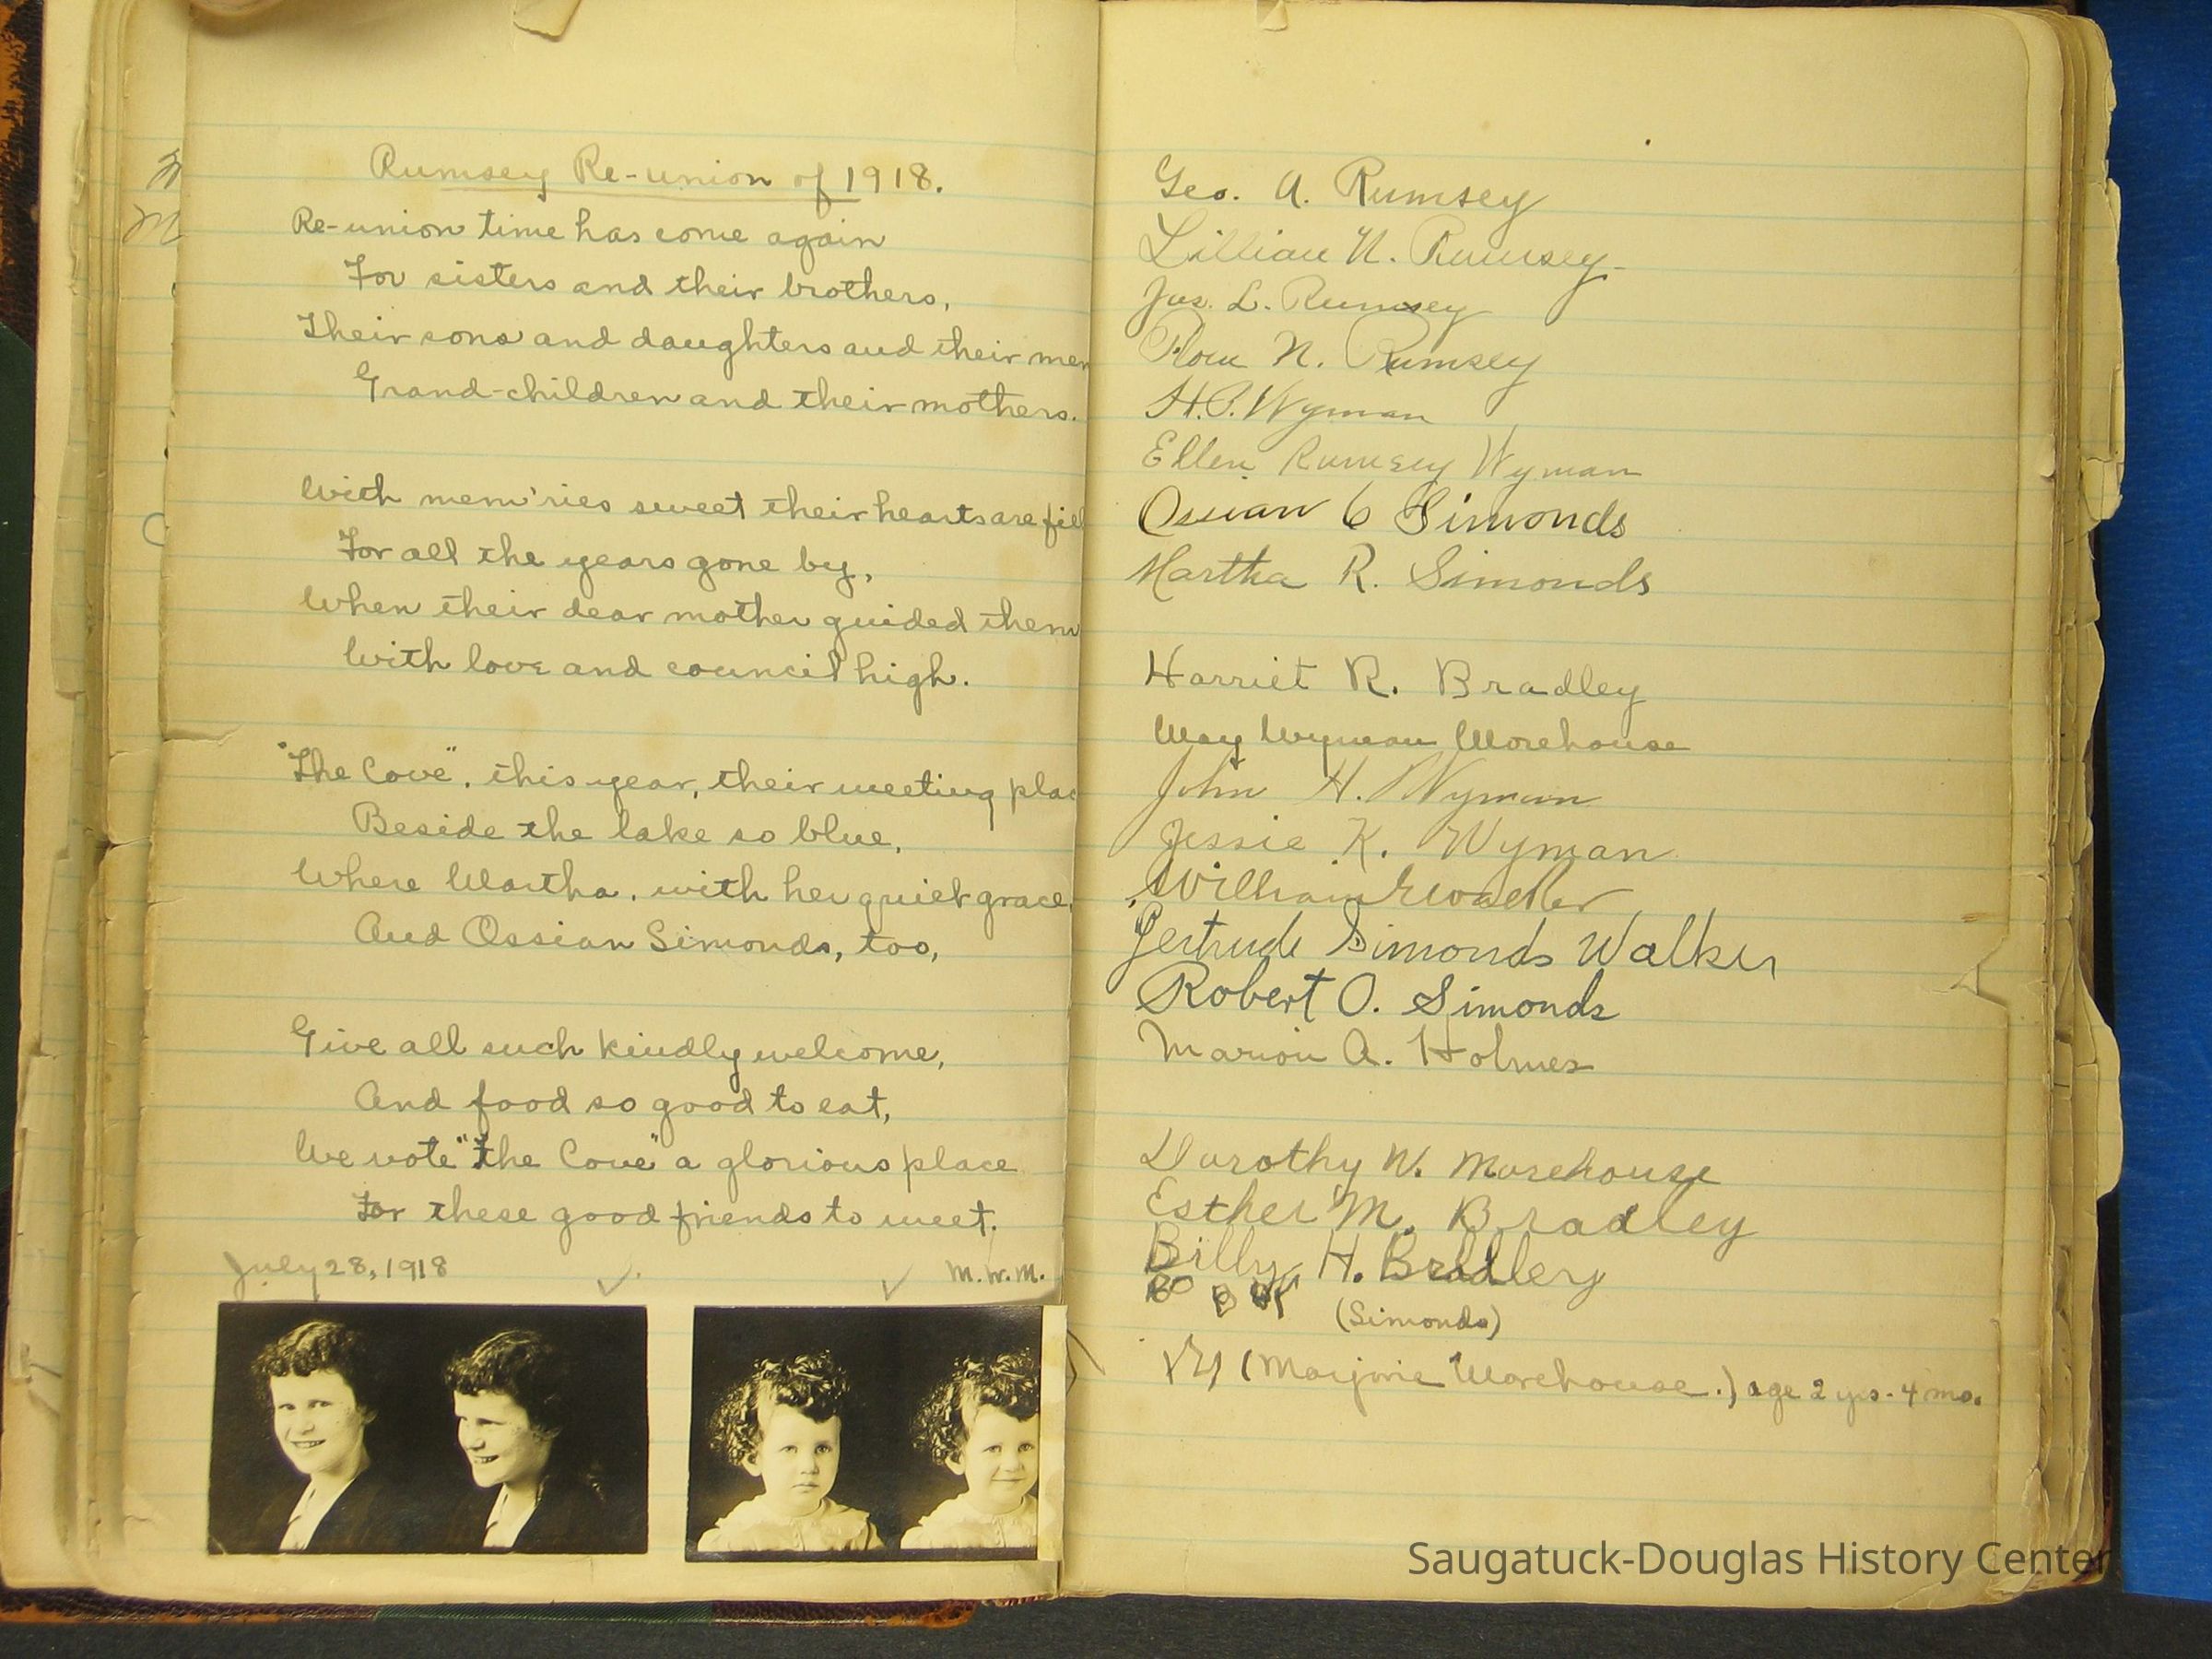 Rumsey Re-union of 1918.
Re-union time has come again
For sisters and their brothers,
Their sons and daughters and their men
Grand-children and their mothers.
With mem'ries sweet their hearts are fil
For all the years gone by,
When their dear mother guided them
With love and council high.
"The Cove", this year, their meeting plac
Beside the lake so blue,
Where Martha, with her quiet grace,
And Ossian Simonds, too,
Give all such kindly welcome,
And food so good to eat,
We vote "the Cove" a glorious place
For these good friends to meet.
July 28, 1918
M.W.M.
Geo. A. Rumsey
Lillian N. Rumsey
Jas. L. Rumsey
N. Rumsey
H.P. Wyman
Ellen Rumsey Wyman
Ossian C Simonds
Martha R. Simonds
Harriet R. Bradley
May Wyman Morehouse
John H. Wyman
Jessie K. Wyman
William
Gertrude Simonds Walker
Robert O. Simonds
Marion A. Holmes
Dorothy W. Morehouse
Esther M. Bradley
Billy H. Bradley
(Simonds)
(Marjorie Morehouse.) age 2 yrs. 4 mo.
Saugatuck-Douglas History Center